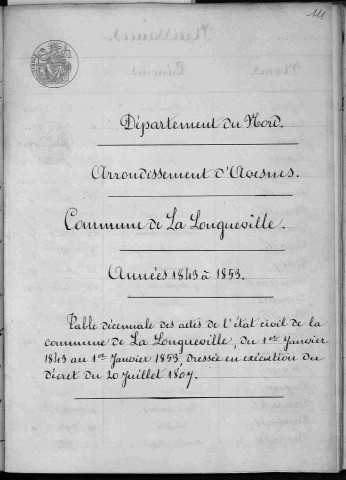 111
Département du Nord.
Arrondissement d'Avesnes.
Commune de La Longueville.
Années 1843 à 1853.
Table décennale des actes de l'état civil de la
commune de La Longueville, du 1er Janvier
1843 au 1er Janvier 1853, dressée en exécution du
décret du 20 Juillet 1807.